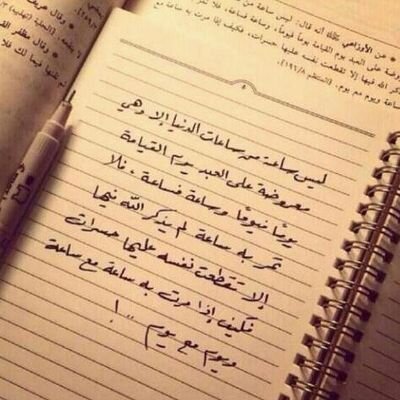 عن الأوزاعي
أنه قال: ليس ساعة من
على العبد يوم القيامة يوماً فيوماً، وساعة فساعة، فلا تمر
الله فيها إلا تقطعت نفسه عليها حسرات، فكيف إذا مرت به ساعة مع
ساعة ويوم مع يوم. (المنتظم ١٩٦/٨)
ليس ساعة من ساعات الدنيا إلا وهي
معروضة على العبد يوم القيامة
يومًا فيومًا وساعة فساعة، فلا
تمر به ساعة لم يذكر الله فيها
إلا تقطعت نفسه عليها حسرات
فكيف إذا مرت به ساعة مع ساعة
ويوم مع يوم ..!